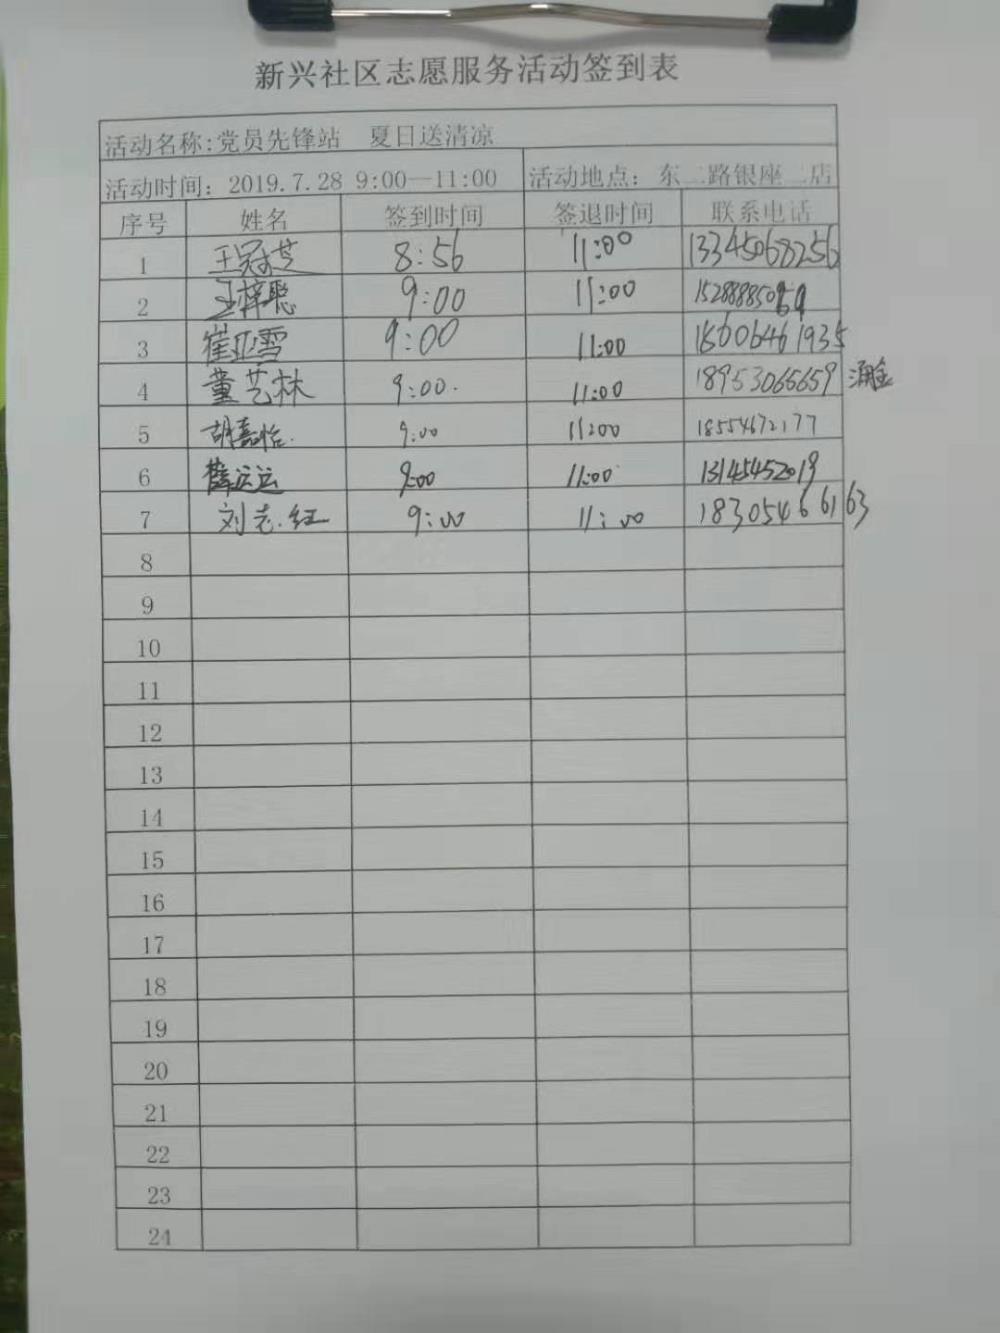 新兴社区志愿服务活动签到表
活动名称:党员先锋站 夏日送清凉
活动时间: 2019.7.28 9:00—11:00 活动地点: 东二路银座二店
序号 姓名 签到时间 签退时间 联系电话
1 王冠芝 8:56 11:00 13345068256
2 王梓聪 9:00 11:00
3 崔亚雪 9:00 11:00
4 董艺林 9:00. 11:00 18953065659
5 胡嘉怡. 9:00 11:00 18554672177
6 薛运运 9:00 11:00 13145452019
7 刘志红 9:00 11:00 18305466163
8
9
10
11
12
13
14
15
16
17
18
19
20
21
22
23
24